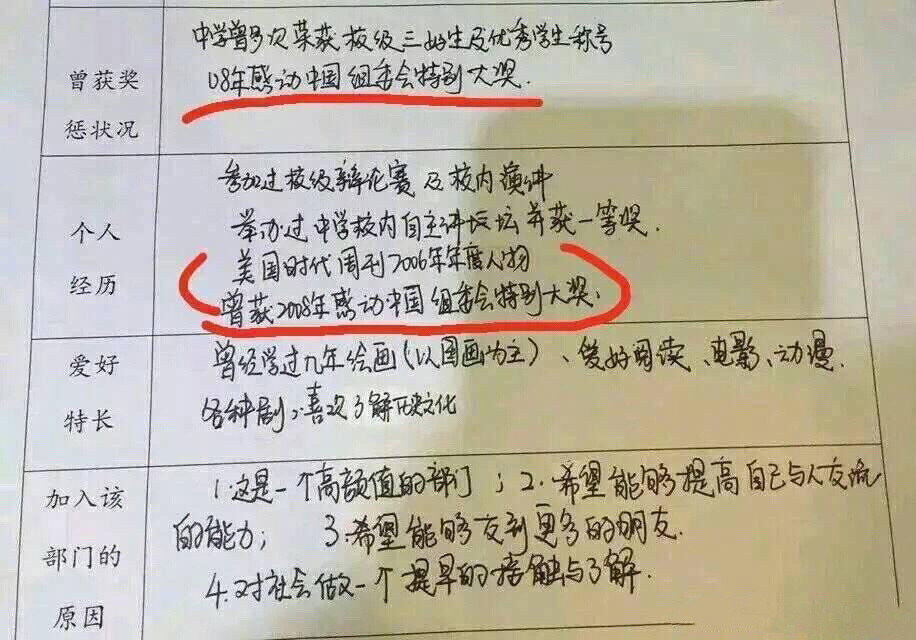 曾获奖
惩状况
中学曾多次荣获校级三好生及优秀学生称号
08年感动中国组委会特别大奖.
个人
经历
参加过校级辩论赛及校内演讲
举办过中学校内自主讲坛并获一等奖.
美国时代周刊2006年年度人物
曾获2008年感动中国组委会特别大奖.
爱好
特长
曾经学过九年绘画(以国画为主)、爱好阅读、电影、动漫.
各种剧;喜欢了解历史文化
加入该
部门的
原因
1.这是一个高颜值的部门;2.希望能够提高自己与人交流
的能力; 3.希望能够交到更多的朋友.
4.对社会做一个提早的接触与了解.